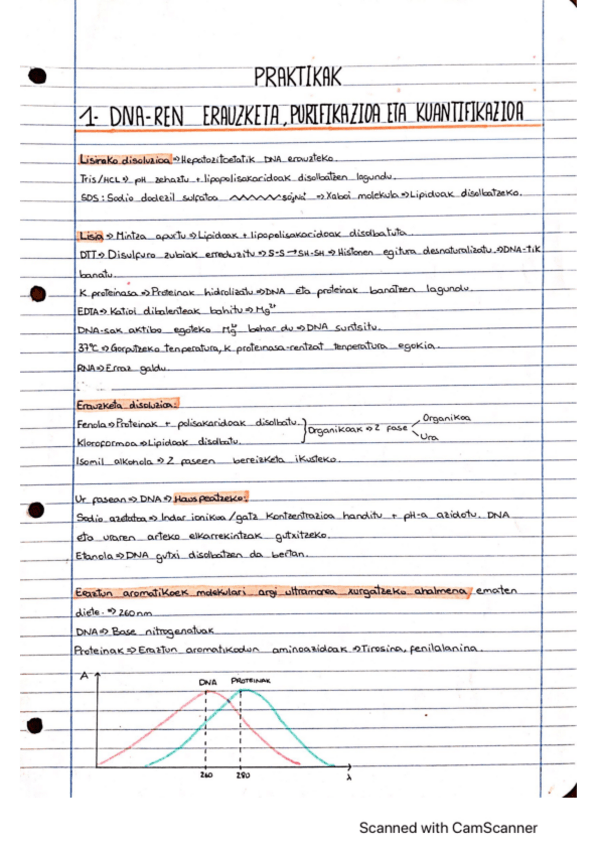 PRAKTIKAK
1- DNA-REN ERAUZKETA, PURIFIKAZIOA ETA KUANTIFIKAZIOA
Lisirako disoluzioa ⇒ Hepatozitoetatik DNA erauzteko.
Tris/HCL ⇒ pH zehaztu + lipopolisakaridoak disolbatzen lagundu.
SDS: Sodio dodezil sulfatoa SO3Na+ ⇒ Xaboi molekula ⇒ Lipidoak disolbatzeko.
Lisia ⇒ Mintza apurtu ⇒ Lipidoak + lipopolisakaridoak disolbatuta.
DTT ⇒ Disulfuro zubiak erreduzitu ⇒ S-S → SH-SH ⇒ Histonen egitura desnaturalizatu. ⇒ DNA-tik
banatu.
K proteinasa ⇒ Proteinak hidrolizatu ⇒ DNA eta proteinak banatzen lagundu.
EDTA ⇒ Katioi dibalenteak bahitu ⇒ Mg2+
DNA-sak aktibo egoteko Mg2+ behar du ⇒ DNA suntsitu.
37ºC ⇒ Gorputzeko tenperatura, K proteinasa-rentzat tenperatura egokia.
RNA ⇒ Erraz galdu.
Erauzketa disoluzioa:
Fenola ⇒ Proteinak + polisakaridoak disolbatu.
Kloroformoa ⇒ Lipidoak disolbatu.
Organikoak ⇒ 2 fase
Organikoa
Ura
Isomil alkohola ⇒ 2 faseen bereizketa ikusteko.
Ur fasean ⇒ DNA ⇒ Hauspeatzeko:
Sodio azetatoa ⇒ Indar ionikoa / gatz kontzentrazioa handitu + pH-a azidotu. DNA
eta uraren arteko elkarrekintzak gutxitzeko.
Etanola ⇒ DNA gutxi disolbatzen da bertan.
Eraztun aromatikoek molekulari argi ultramorea xurgatzeko ahalmena ematen
diete. ⇒ 260nm
DNA ⇒ Base nitrogenatuak
Proteinak ⇒ Eraztun aromatikodun aminoazidoak ⇒ Tirosina, fenilalanina.
A
DNA PROTEINAK
260 280 λ
Scanned with CamScanner